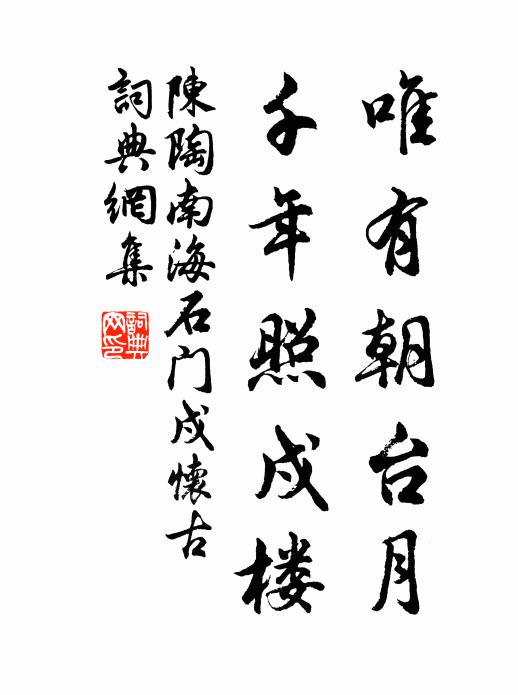 唯有朝台月
千年照戍楼
陳陶南海石门戍懷古
詞典網集
詞典网印